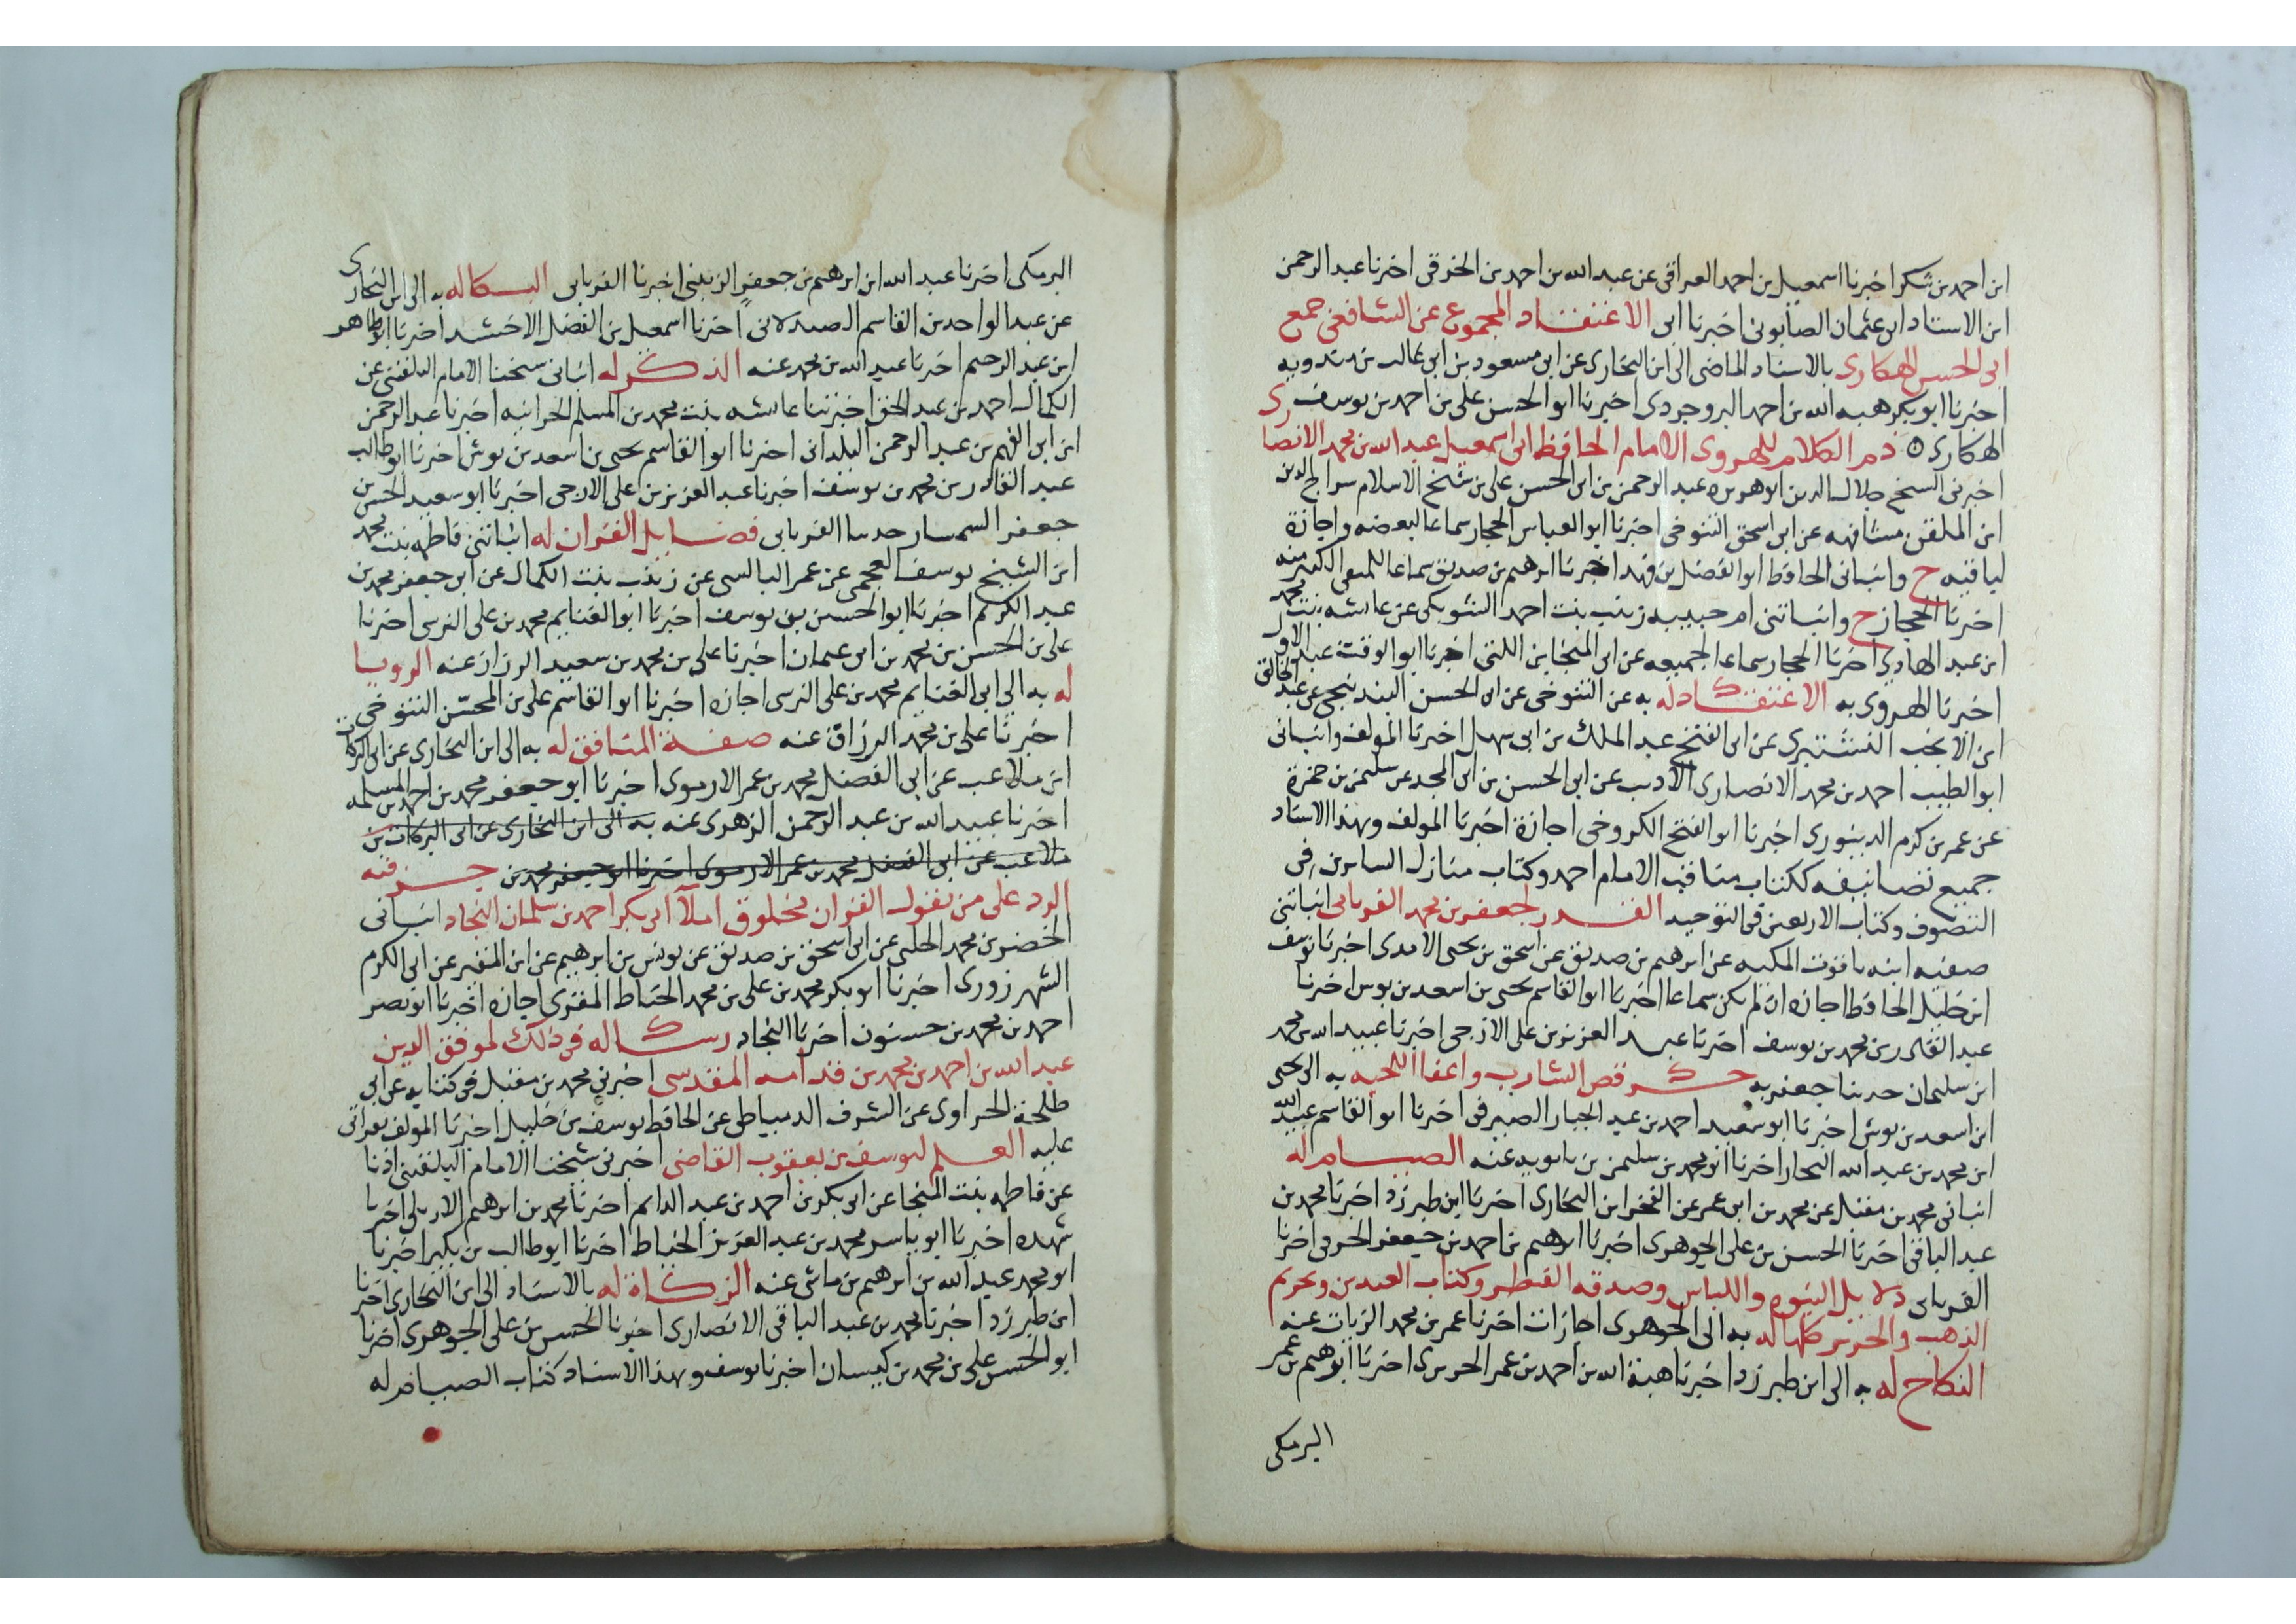 ابن احمد بن شكر اخبرنا اسمعيل بن احمد العراقى عن عبد الله بن احمد بن الخرقى اخبرنا عبد الرحمن
ابن الاستاد ابى عثمان الصابونى اخبرنا ابى الاعتقاد المجموع عن الشافعى جمع
ابى الحسن الهكارى بالاسناد الماضى الى ابن البخارى عن ابى مسعود بن ابى غالب بن
اخبرنا ابو بكر هبه الله بن احمد البروجردى اخبرنا ابو الحسن على بن احمد بن يوسف
الهكارى ذم الكلام للهروى الامام الحافظ ابى اسمعيل عبد الله بن محمد الانصارى
اخبرنى الشيخ جلال الدين ابو هريره عبد الرحمن بن ابى الحسن على بن شيخ الاسلام سراج الدين
ابن الملقن مشافهه عن ابى اسحق التنوخى اخبرنا ابو العباس الحجار سماعا لبعضه واجازة
لباقيه ح وانبانى الحافظ ابو الفضل بن فهد اخبرنا ابرهيم بن صديق سماعا للمنتقى الكبير منه
اخبرنا الحجار ح وانباتنى ام حبيبه زينب بنت احمد الشوبكى عن عائشه بنت محمد
ابن عبد الهادى اخبرنا الحجار سماعا لجميعه عن ابى المنجا ابن اللتى اخبرنا ابو الوقت عبد الاول
اخبرنا الهروى به الاعتقاد له به عن التنوخى عن ابى الحسن البندنيجى عن عبد الخالق
ابن الانجب النشتبرى عن ابى الفتح عبد الملك بن ابى سهل اخبرنا المولف وانبانى
ابو الطيب احمد بن محمد الانصارى الاديب عن ابى الحسن بن ابى المجد عن سليمن بن حمزة
عن عمر بن كرم الدينورى اخبرنا ابو الفتح الكروخى اجازة اخبرنا المولف وبهذا الاسناد
جميع تصانيفه ككتاب مناقب الامام احمد وكتاب منازل السايرين فى
التصوف وكتاب الاربعين فى التوحيد القدر لجعفر بن محمد الفريابى انباتنى
صفيه ابنه ياقوت المكيه عن ابرهيم بن صديق عن اسحق بن يحيى الامدى اخبرنا يوسف
ابن خليل الحافظ اجازه ان لم يكن سماعا اخبرنا ابو القاسم يحيى بن اسعد بن بوش اخبرنا
عبد القادر بن محمد بن يوسف اخبرنا عبد العزيز بن على الازجى اخبرنا عبيد الله بن محمد
ابن سليمان حدثنا جعفر به ذكر قص الشارب واعفا اللحيه به الى يحيى
ابن اسعد بن بوش اخبرنا ابو سعيد احمد بن عبد الجبار الصيرفى اخبرنا ابو القاسم عبيد الله
ابن محمد بن عبد الله النجار اخبرنا ابو محمد بن سليمن بن بابويه عنه الصيام له
انبانى محمد بن مقبل عن محمد بن ابى عمر عن الفخر ابن البخارى اخبرنا ابن طبرزد اخبرنا محمد بن
عبد الباقى اخبرنا الحسن بن على الجوهرى اخبرنا ابرهيم بن احمد بن جعفر الخرقى اخبرنا
الفريابى دلايل النبوه واللباس وصدقه الفطر وكتاب العيدين وتحريم
الذهب والحرير كلها له به الى الجوهرى اجازات اخبرنا عمر بن محمد الزيات عنه
النكاح له به الى ابن طبرزد اخبرنا هبة الله بن احمد بن عمر الحريرى اخبرنا ابرهيم بن عمر
البرمكى
البرمكى اخبرنا عبد الله ابن ابرهيم بن جعفر الزينبى اخبرنا الفريابى البكا له به الى ابن البخارى
عن عبد الواحد بن القاسم الصيدلانى اخبرنا اسمعيل بن الفضل الاخشيد اخبرنا ابو طاهر
ابن عبد الرحيم اخبرنا عبد الله بن محمد عنه الذكر له انبانى شيخنا الامام البلقينى عن
الكمال احمد بن عبد الحق اخبرتنا عائشه بنت محمد بن المسلم الحرانيه اخبرنا عبد الرحمن
ابن ابى الفهم بن عبد الرحمن البلدانى اخبرنا ابو القاسم يحيى بن اسعد بن بوش اخبرنا ابو طالب
عبد القادر بن محمد بن يوسف اخبرنا عبد العزيز بن على الازجى اخبرنا ابو سعيد الحسن بن
جعفر السمسار حدثنا الفريابى فضايل القران له انباتنى فاطمه بنت محمد
ابن الشيخ يوسف العجمى عن عمر البالسى عن زينب بنت الكمال عن ابى جعفر محمد بن
عبد الكريم اخبرنا ابو الحسين بن يوسف اخبرنا ابو الغنايم محمد بن على النرسى اخبرنا
على بن الحسن بن محمد بن ابى عثمان اخبرنا على بن محمد بن سعيد الرزاز عنه الرويا
له به الى ابى الغنايم محمد بن على النرسى اجازه اخبرنا ابو القاسم على بن المحسّن التنوخى
اخبرنا على بن محمد الرزاق عنه صفة المنافق له به الى ابن البخارى عن ابى البركات
ابن ملاعب عن ابى الفضل محمد بن عمر الارموى اخبرنا ابو جعفر محمد بن احمد بن المسلمه
اخبرنا عبيد الله بن عبد الرحمن الزهرى عنه به الى ابن البخارى عن ابى البركات بن
ملاعب عن ابى الفضل محمد بن عمر الارموى اخبرنا ابو جعفر محمد بن جزء فيه
الرد على من يقول القران مخلوق املآ ابى بكر احمد بن سلمان النجاد انبانى
الخضر بن محمد الحلبى عن ابى اسحق بن صديق عن يونس بن ابرهيم عن ابن المقير عن ابى الكرم
الشهرزورى اخبرنا ابو بكر محمد بن على بن محمد الخياط المقرى اجازه اخبرنا ابو نصر
احمد بن محمد بن حسنون اخبرنا النجاد رساله فى ذلك لموفق الدين
عبد الله بن احمد بن محمد بن قدامه المقدسى اخبرنى محمد بن مقبل فى كتابه عن ابى
طلحة الحراوى عن الشرف الدمياطى عن الحافظ يوسف بن خليل اخبرنا المولف بقراتى
عليه العلم ليوسف بن يعقوب القاضى اخبرنى شيخنا الامام البلقينى اذنا
عن فاطمه بنت المنجا عن ابى بكر بن احمد بن عبد الدايم اخبرنا محمد بن ابرهيم الاربلى اخبرنا
شهده اخبرنا ابو ياسر محمد بن عبد العزيز الخياط اخبرنا ابو طالب بن بكير اخبرنا
ابو محمد عبد الله بن ابرهيم بن ماسى عنه الزكاة له بالاسناد الى ابن البخارى اخبرنا
ابن طبرزد اخبرنا محمد بن عبد الباقى الانصارى اخبرنا الحسن بن على الجوهرى اخبرنا
ابو الحسن على بن محمد بن كيسان اخبرنا يوسف وبهذا الاسناد كتاب الصيام له